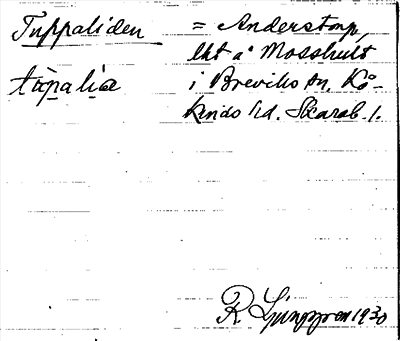 Tuppaliden = Anderstorp,
lht å Mosshult
tùpalia i Breviks sn. Kå-
kinds hd. Skarab. l.
R Ljunggren 1930